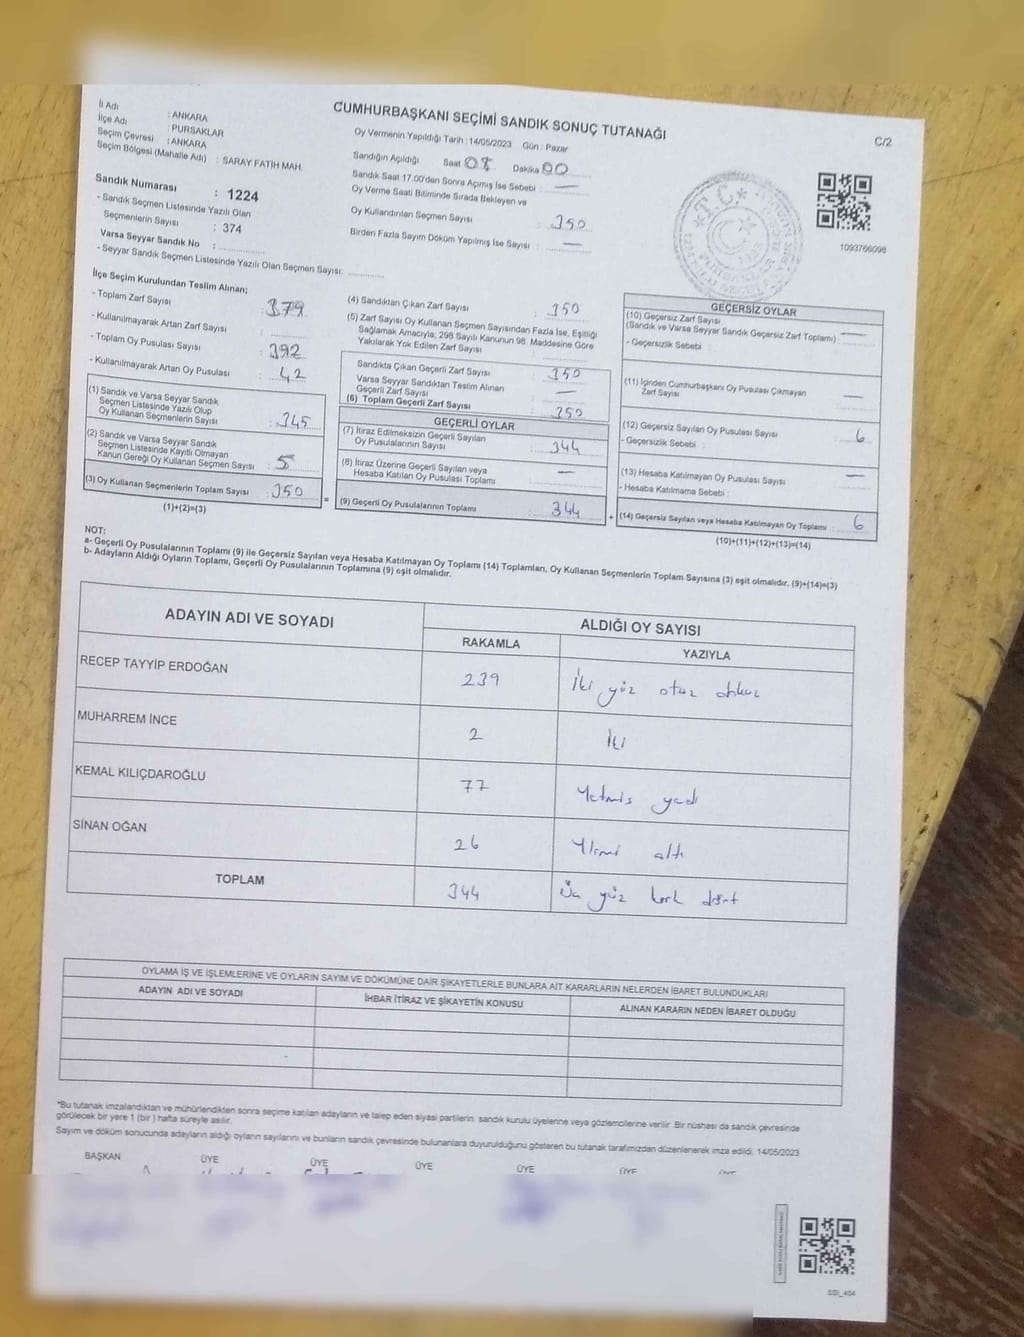 CUMHURBAŞKANI SEÇİMİ SANDIK SONUÇ TUTANAĞI
C/2
İl Adı : ANKARA
İlçe Adı : PURSAKLAR
Seçim Çevresi : ANKARA
Seçim Bölgesi (Mahalle Adı) : SARAY FATİH MAH.
Sandık Numarası : 1224
- Sandık Seçmen Listesinde Yazılı Olan
Seçmenlerin Sayısı : 374
Varsa Seyyar Sandık No :
- Seyyar Sandık Seçmen Listesinde Yazılı Olan Seçmen Sayısı:
Oy Vermenin Yapıldığı Tarih : 14/05/2023 Gün : Pazar
Sandığın Açıldığı Saat 08 Dakika 00
Sandık Saat 17.00'den Sonra Açımış İse Sebebi : —
Oy Verme Saati Bitiminde Sırada Bekleyen ve
Oy Kullandırılan Seçmen Sayısı : 350
Birden Fazla Sayım Döküm Yapılmış İse Sayısı : —
T.C.
1093766098
İlçe Seçim Kurulundan Teslim Alınan;
- Toplam Zarf Sayısı : 379
- Kullanılmayarak Artan Zarf Sayısı :
- Toplam Oy Pusulası Sayısı : 392
- Kullanılmayarak Artan Oy Pusulası : 42
(1) Sandık ve Varsa Seyyar Sandık
Seçmen Listesinde Yazılı Olup
Oy Kullanan Seçmenlerin Sayısı : 345
(2) Sandık ve Varsa Seyyar Sandık
Seçmen Listesinde Kayıtlı Olmayan
Kanun Gereği Oy Kullanan Seçmen Sayısı : 5
(3) Oy Kullanan Seçmenlerin Toplam Sayısı : 350
(1)+(2)=(3)
(4) Sandıktan Çıkan Zarf Sayısı : 350
(5) Zarf Sayısı Oy Kullanan Seçmen Sayısından Fazla İse, Eşitliği
Sağlamak Amacıyla; 298 Sayılı Kanunun 98. Maddesine Göre
Yakılarak Yok Edilen Zarf Sayısı :
Sandıkta Çıkan Geçerli Zarf Sayısı : 350
Varsa Seyyar Sandıktan Teslim Alınan
Geçerli Zarf Sayısı : —
(6) Toplam Geçerli Zarf Sayısı : 350
GEÇERLİ OYLAR
(7) İtiraz Edilmeksizin Geçerli Sayılan
Oy Pusulalarının Sayısı : 344
(8) İtiraz Üzerine Geçerli Sayılan veya
Hesaba Katılan Oy Pusulası Toplamı : —
(9) Geçerli Oy Pusulalarının Toplamı : 344
GEÇERSİZ OYLAR
(10) Geçersiz Zarf Sayısı
(Sandık ve Varsa Seyyar Sandık Geçersiz Zarf Toplamı) : —
- Geçersizlik Sebebi :
(11) İçinden Cumhurbaşkanı Oy Pusulası Çıkmayan
Zarf Sayısı : —
(12) Geçersiz Sayılan Oy Pusulası Sayısı : 6
- Geçersizlik Sebebi :
(13) Hesaba Katılmayan Oy Pusulası Sayısı : —
- Hesaba Katılmama Sebebi :
(14) Geçersiz Sayılan veya Hesaba Katılmayan Oy Toplamı : 6
(10)+(11)+(12)+(13)=(14)
NOT:
a- Geçerli Oy Pusulalarının Toplamı (9) ile Geçersiz Sayılan veya Hesaba Katılmayan Oy Toplamı (14) Toplamları, Oy Kullanan Seçmenlerin Toplam Sayısına (3) eşit olmalıdır. (9)+(14)=(3)
b- Adayların Aldığı Oyların Toplamı, Geçerli Oy Pusulalarının Toplamına (9) eşit olmalıdır.
ADAYIN ADI VE SOYADI ALDIĞI OY SAYISI
RAKAMLA YAZIYLA
RECEP TAYYİP ERDOĞAN 239 İki yüz otuz dokuz
MUHARREM İNCE 2 İki
KEMAL KILIÇDAROĞLU 77 Yetmis yedi
SİNAN OĞAN 26 Yirmi altı
TOPLAM 344 Üç yüz kırk dört
OYLAMA İŞ VE İŞLEMLERİNE VE OYLARIN SAYIM VE DÖKÜMÜNE DAİR ŞİKAYETLERLE BUNLARA AİT KARARLARIN NELERDEN İBARET BULUNDUKLARI
ADAYIN ADI VE SOYADI İHBAR İTİRAZ VE ŞİKAYETİN KONUSU ALINAN KARARIN NEDEN İBARET OLDUĞU
*Bu tutanak imzalandıktan ve mühürlendikten sonra seçime katılan adayların ve talep eden siyasi partilerin sandık kurulu üyelerine veya gözlemcilerine verilir. Bir nüshası da sandık çevresinde
görülecek bir yere 1 (bir) hafta süreyle asılır.
Sayım ve döküm sonucunda adayların aldığı oyların sayılarını ve bunların sandık çevresinde bulunanlara duyurulduğunu gösteren bu tutanak tarafımızdan düzenlenerek imza edildi. 14/05/2023
BAŞKAN ÜYE ÜYE ÜYE ÜYE ÜYE ÜYE
SSI_404